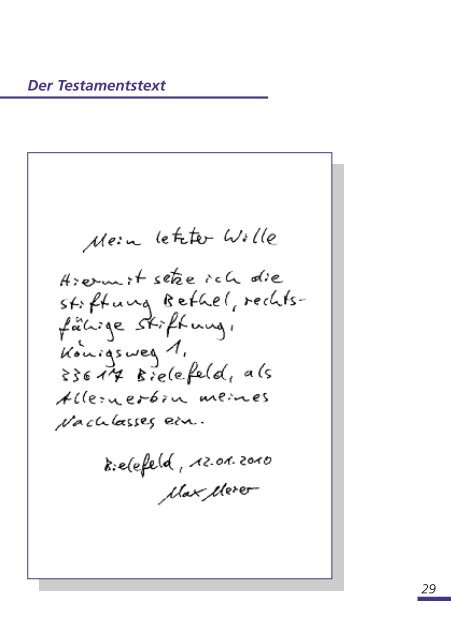 Der Testamentstext
Mein letzter Wille
Hiermit setze ich die
Stiftung Bethel, rechts-
fähige Stiftung,
Königsweg 1,
33617 Bielefeld, als
Alleinerbin meines
Nachlasses ein.
Bielefeld, 12.01.2010
Max Meier
29